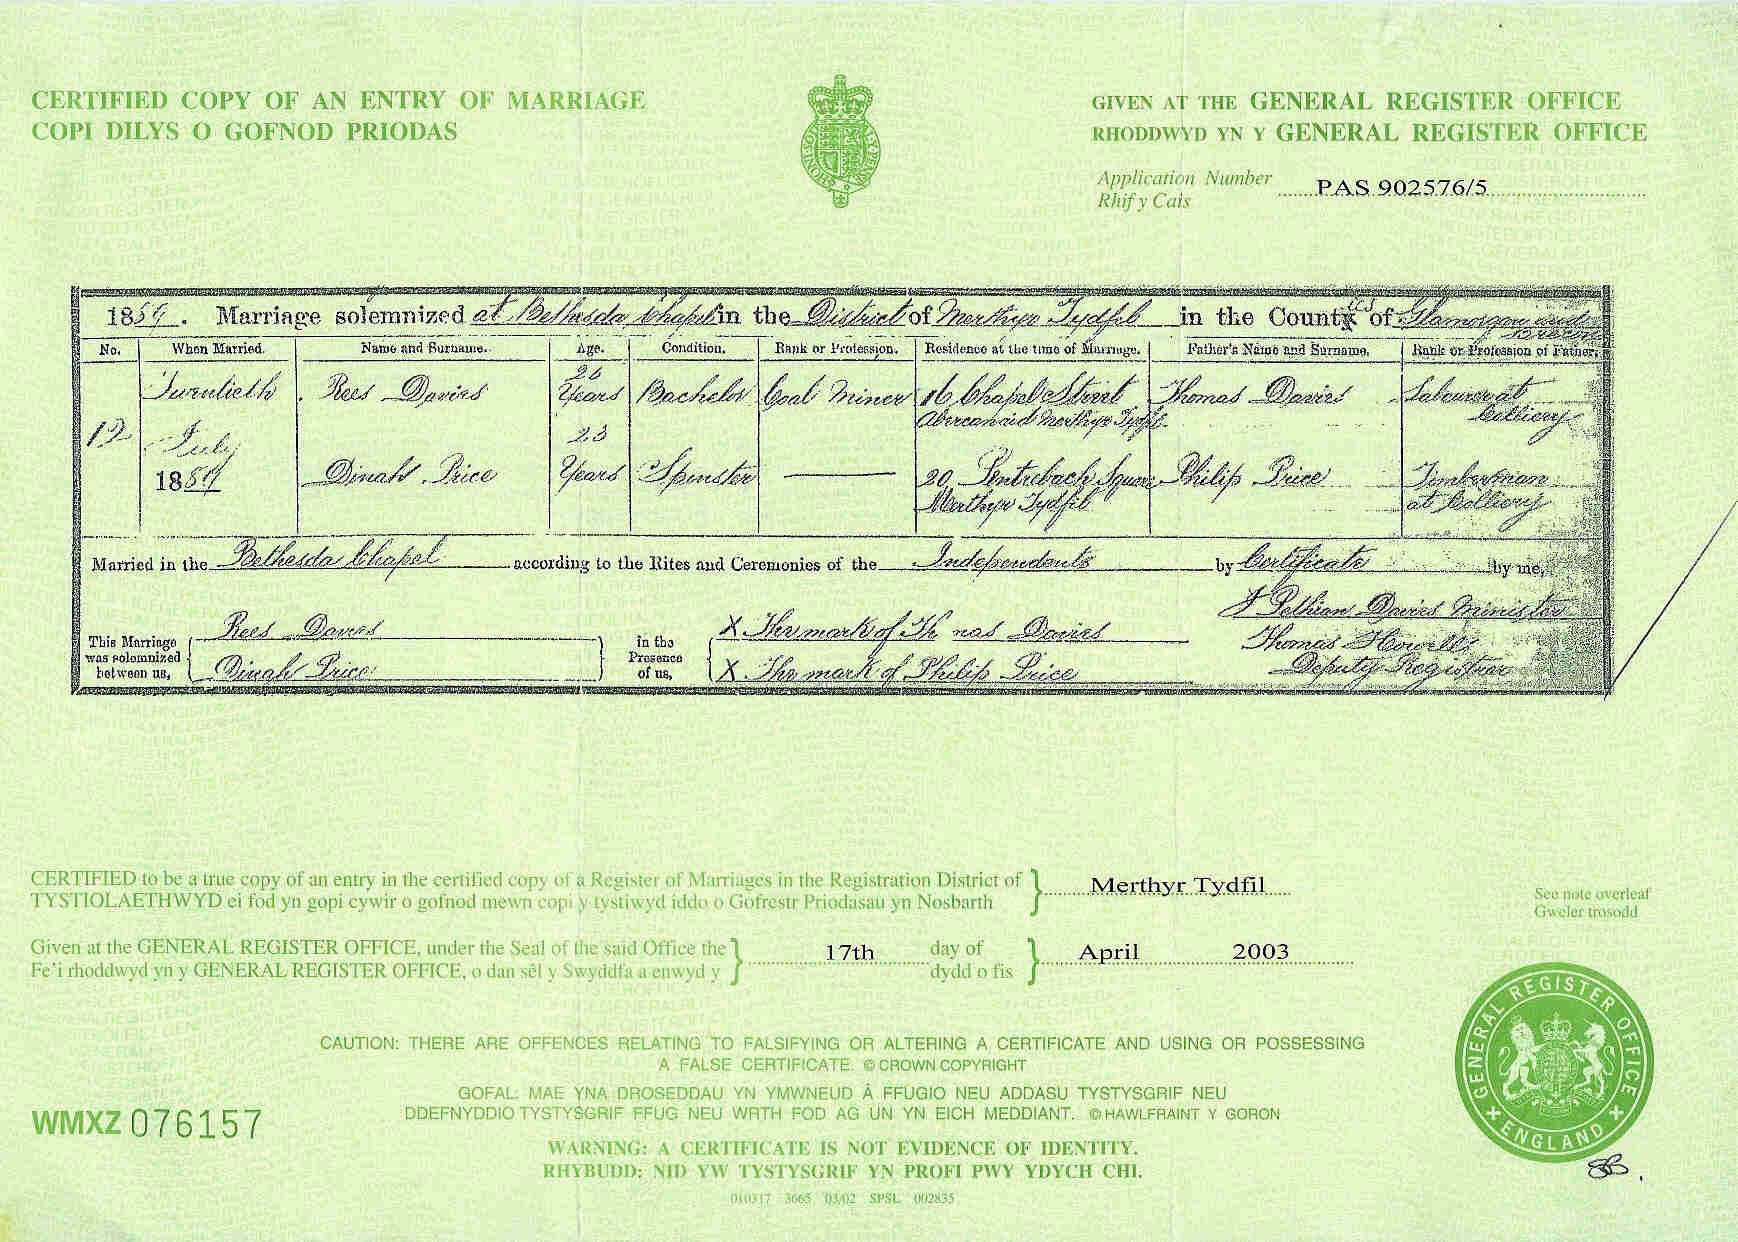 CERTIFIED COPY OF AN ENTRY OF MARRIAGE
COPI DILYS O GOFNOD PRIODAS
GIVEN AT THE GENERAL REGISTER OFFICE
RHODDWYD YN Y GENERAL REGISTER OFFICE
Application Number
Rhif y Cais
PAS 902576/5
1889. Marriage solemnized at Bethesda Chapel in the District of Merthyr Tydfil in the Counties of Glamorgan and
No. When Married. Name and Surname. Age. Condition. Rank or Profession. Residence at the time of Marriage. Father's Name and Surname. Rank or Profession of Father.
12 Twentieth July 1889
Rees Davies 26 Years Bachelor Coal Miner 16 Chapel Street Abercanaid Merthyr Tydfil Thomas Davies Labourer at Colliery
Dinah Price 23 Years Spinster 20 Pentrebach Square Merthyr Tydfil Philip Price Timberman at Colliery
Married in the Bethesda Chapel according to the Rites and Ceremonies of the Independents by Certificate by me,
This Marriage was solemnized between us, Rees Davies
Dinah Price
in the Presence of us, X The mark of Th nas Davies
X The mark of Philip Price
Davies Minister
Thomas Howells
Deputy Registrar
CERTIFIED to be a true copy of an entry in the certified copy of a Register of Marriages in the Registration District of
TYSTIOLAETHWYD ei fod yn gopi cywir o gofnod mewn copi y tystiwyd iddo o Gofrestr Priodasau yn Nosbarth
Merthyr Tydfil
See note overleaf
Gweler trosodd
Given at the GENERAL REGISTER OFFICE, under the Seal of the said Office the
Fe'i rhoddwyd yn y GENERAL REGISTER OFFICE, o dan sêl y Swyddfa a enwyd y
17th
day of
dydd o fis
April 2003
CAUTION: THERE ARE OFFENCES RELATING TO FALSIFYING OR ALTERING A CERTIFICATE AND USING OR POSSESSING
A FALSE CERTIFICATE. © CROWN COPYRIGHT
GOFAL: MAE YNA DROSEDDAU YN YMWNEUD Â FFUGIO NEU ADDASU TYSTYSGRIF NEU
DDEFNYDDIO TYSTYSGRIF FFUG NEU WRTH FOD AG UN YN EICH MEDDIANT. © HAWLFRAINT Y GORON
WARNING: A CERTIFICATE IS NOT EVIDENCE OF IDENTITY.
RHYBUDD: NID YW TYSTYSGRIF YN PROFI PWY YDYCH CHI.
WMXZ 076157
010317 3665 03/02 SPSL 002835
GENERAL REGISTER OFFICE
ENGLAND